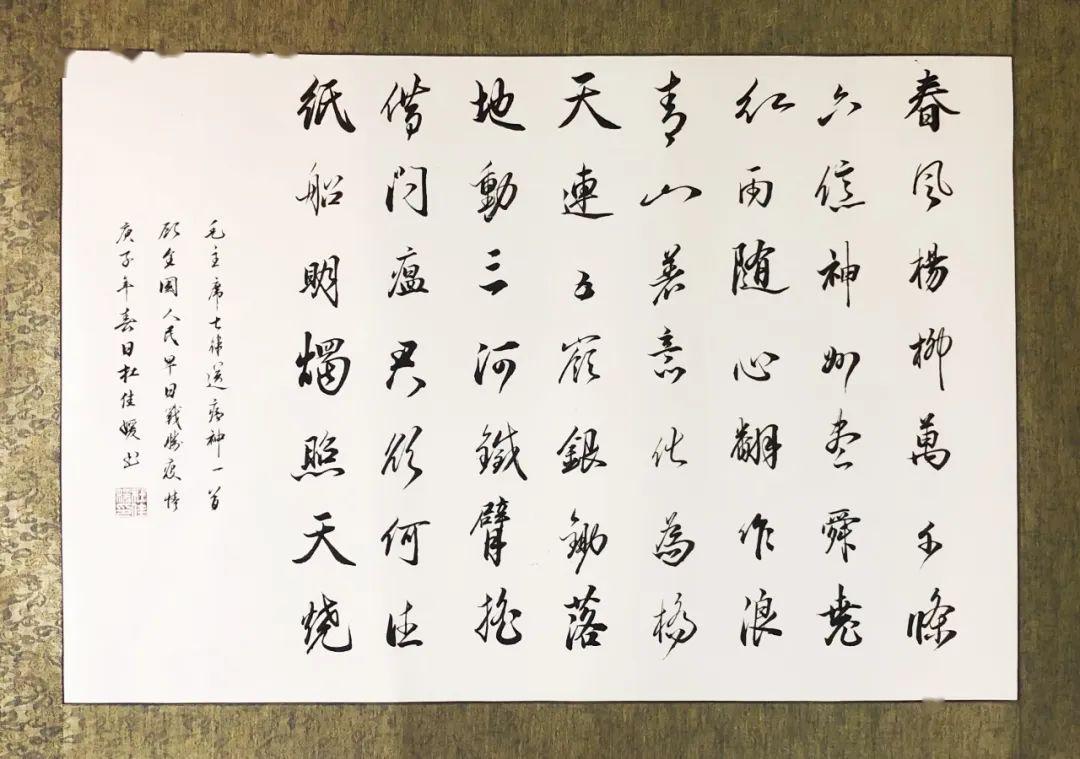 春风楊柳萬千條
六億神州盡舜堯
紅雨随心翻作浪
青山著意化為橋
天連五嶺銀鋤落
地動三河鐵臂摇
借問瘟君欲何往
紙船明燭照天燒
毛主席七律送瘟神一首
願全國人民早日戰勝疫情
庚子年春日杜佳書